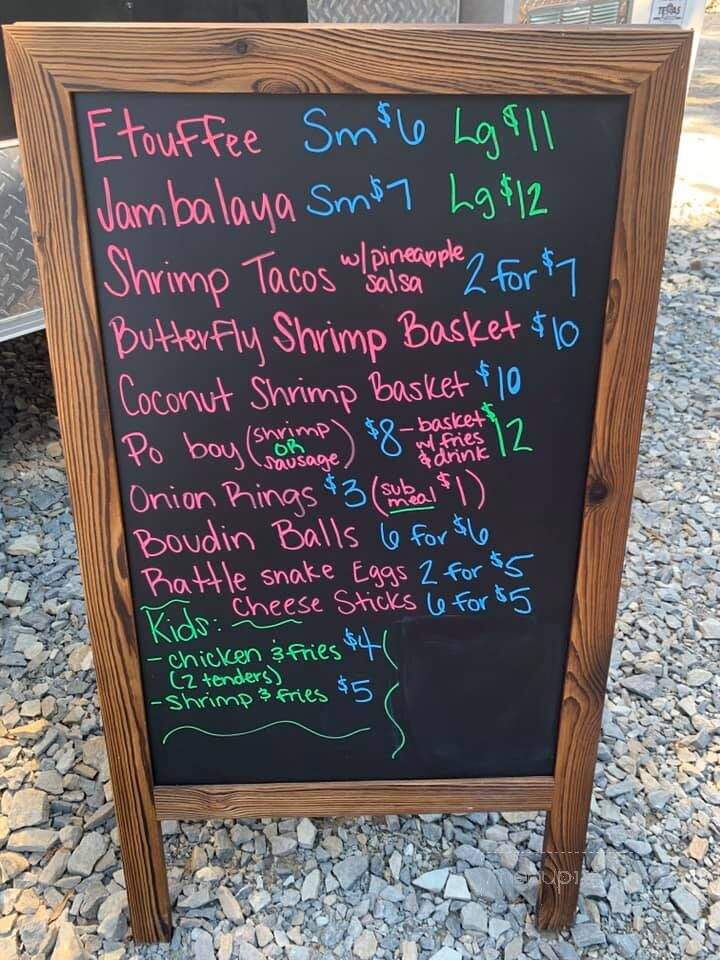 Etouffee Sm $6 Lg $11
Jambalaya Sm $7 Lg $12
Shrimp Tacos w/pineapple salsa 2 for $7
Butterfly Shrimp Basket $10
Coconut Shrimp Basket $10
Po boy (shrimp OR sausage) $8 - basket w/ fries & drink $12
Onion Rings $3 (sub meal $1)
Boudin Balls 6 for $6
Rattle snake Eggs 2 for $5
Cheese Sticks 6 for $5
Kids:
- chicken & fries $4
(2 tenders)
- shrimp & fries $5